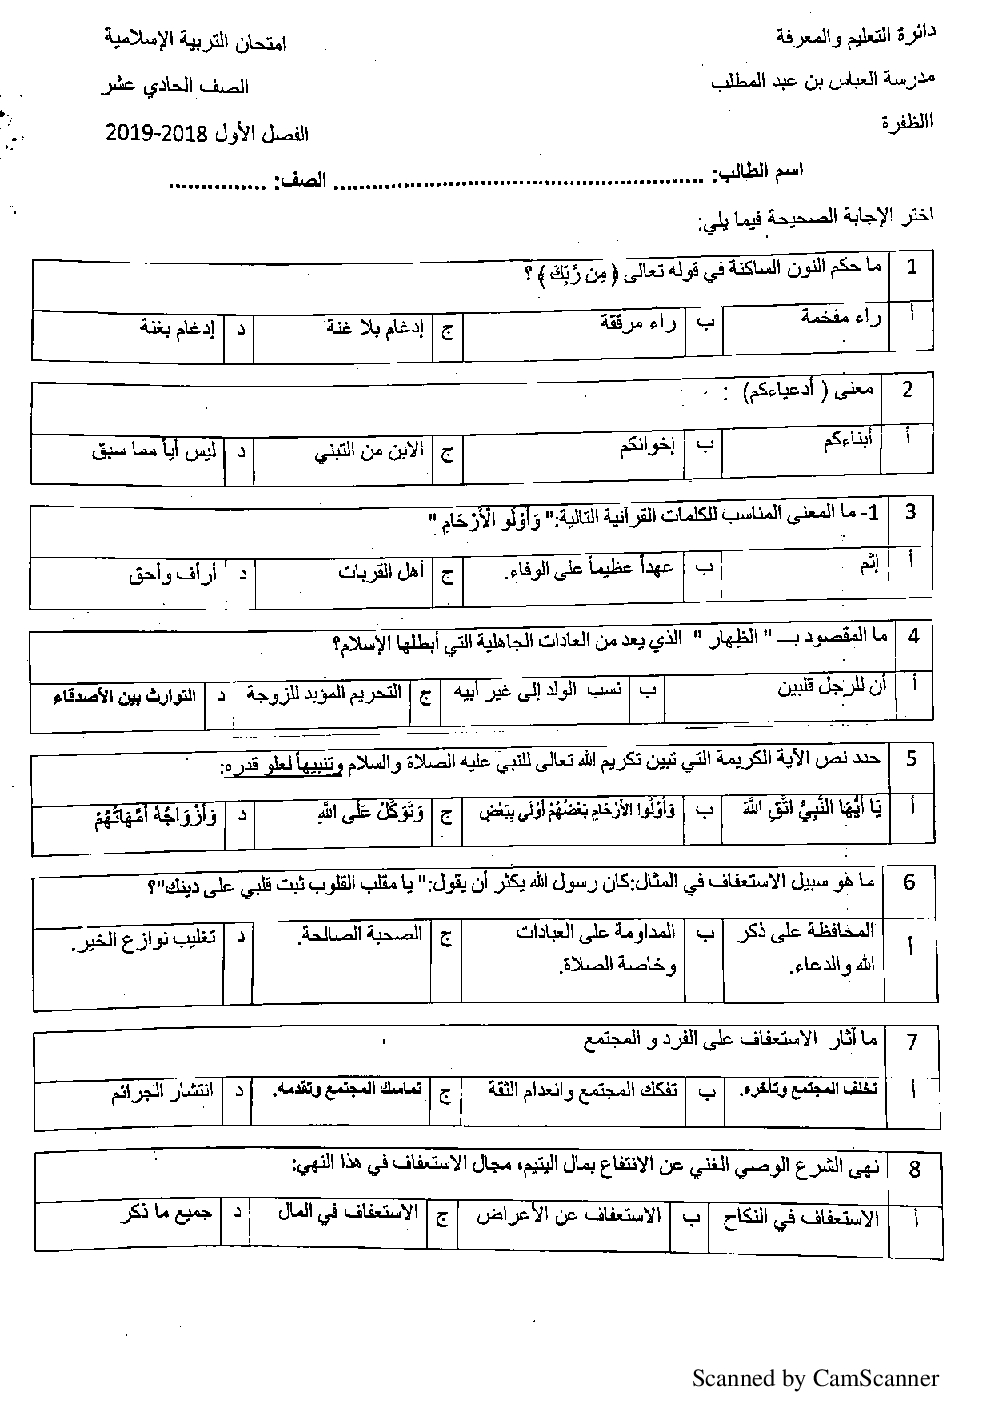 دائرة التعليم والمعرفة
امتحان التربية الإسلامية
مدرسة العباس بن عبد المطلب
الصف الحادي عشر
الظفرة
الفصل الأول 2018-2019
اسم الطالب: ........................................................ الصف: ...............
اختر الإجابة الصحيحة فيما يلي:
1 ما حكم النون الساكنة في قوله تعالى ( مِن رَّبِّكَ ) ؟
أ راء مفخمة ب راء مرققة ج إدغام بلا غنة د إدغام بغنة
2 معنى ( أدعياءكم) :
أ أبناءكم ب إخوانكم ج الابن من التبني د ليس أياً مما سبق
3 1- ما المعنى المناسب للكلمات القرآنية التالية:" وَأُوْلُو الْأَرْحَامِ "
أ إثم ب عهداً عظيماً على الوفاء. ج أهل القربات د أرأف وأحق
4 ما المقصود بـ " الظهار " الذي يعد من العادات الجاهلية التي أبطلها الإسلام؟
أ أن للرجل قلبين ب نسب الولد إلى غير أبيه ج التحريم المؤبد للزوجة د التوارث بين الأصدقاء
5 حدد نص الآية الكريمة التي تبين تكريم الله تعالى للنبي عليه الصلاة والسلام وتنبيهاً لعلو قدره:
أ يَا أَيُّهَا النَّبِيُّ اتَّقِ اللَّهَ ب وَأُوْلُوا الأَرْحَامِ بَعْضُهُمْ أَوْلَى بِبَعْضٍ ج وَتَوَكَّلْ عَلَى اللَّهِ د وَأَزْوَاجُهُ أُمَّهَاتُهُمْ
6 ما هو سبيل الاستعفاف في المثال:كان رسول الله يكثر أن يقول:" يا مقلب القلوب ثبت قلبي على دينك"؟
أ المحافظة على ذكر ب المداومة على العبادات ج الصحبة الصالحة. د تغليب نوازع الخير.
الله والدعاء. وخاصة الصلاة.
7 ما آثار الاستعفاف على الفرد و المجتمع
أ تخلف المجتمع وتأخره. ب تفكك المجتمع وانعدام الثقة ج تماسك المجتمع وتقدمه. د انتشار الجرائم
8 نهى الشرع الوصي الغني عن الانتفاع بمال اليتيم، مجال الاستعفاف في هذا النهي:
أ الاستعفاف في النكاح ب الاستعفاف عن الأعراض ج الاستعفاف في المال د جميع ما ذكر
Scanned by CamScanner